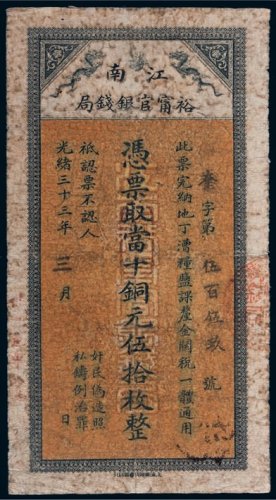 江南
裕甯官銀錢局
此票完納地丁漕糧鹽課釐金關稅一體適用
字第伍百伍 號
憑票取當十銅元伍拾枚整
祇認票不認人
光緒三十三年三月 日
奸民偽造照
私鑄例治罪